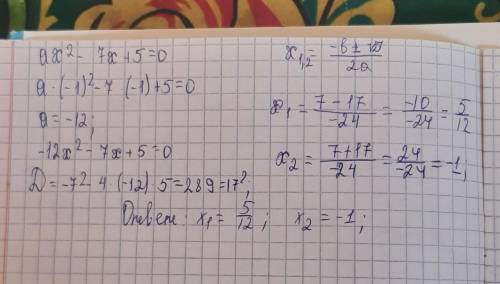 ax² - 7x + 5 = 0
a · (-1)² - 7 · (-1) + 5 = 0
a = -12;
-12x² - 7x + 5 = 0
D = -7² - 4 · (-12) · 5 = 289 = 17²;
x₁,₂ = (-в ± √D)/2a
x₁ = (7 - 17)/-24 = -10/-24 = 5/12
x₂ = (7 + 17)/-24 = 24/-24 = -1;
Ответ: x₁ = 5/12; x₂ = -1;